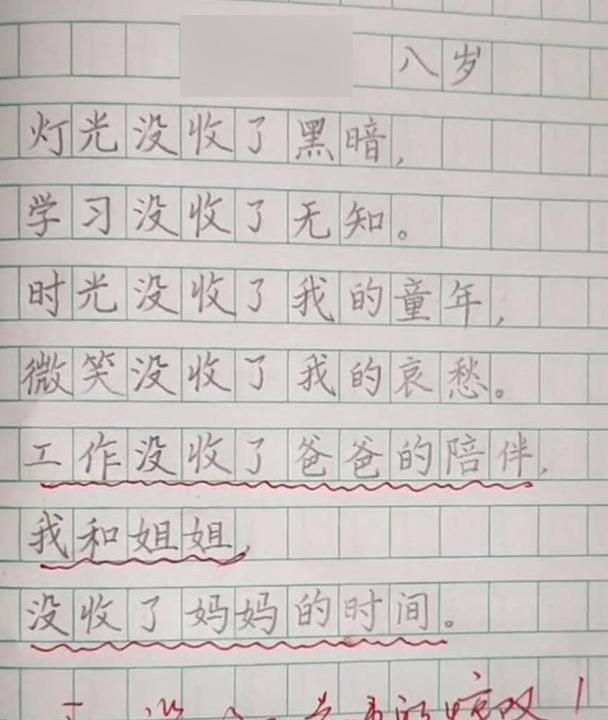 八岁
灯光没收了黑暗，
学习没收了无知。
时光没收了我的童年，
微笑没收了我的哀愁。
工作没收了爸爸的陪伴，
我和姐姐，
没收了妈妈的时间。